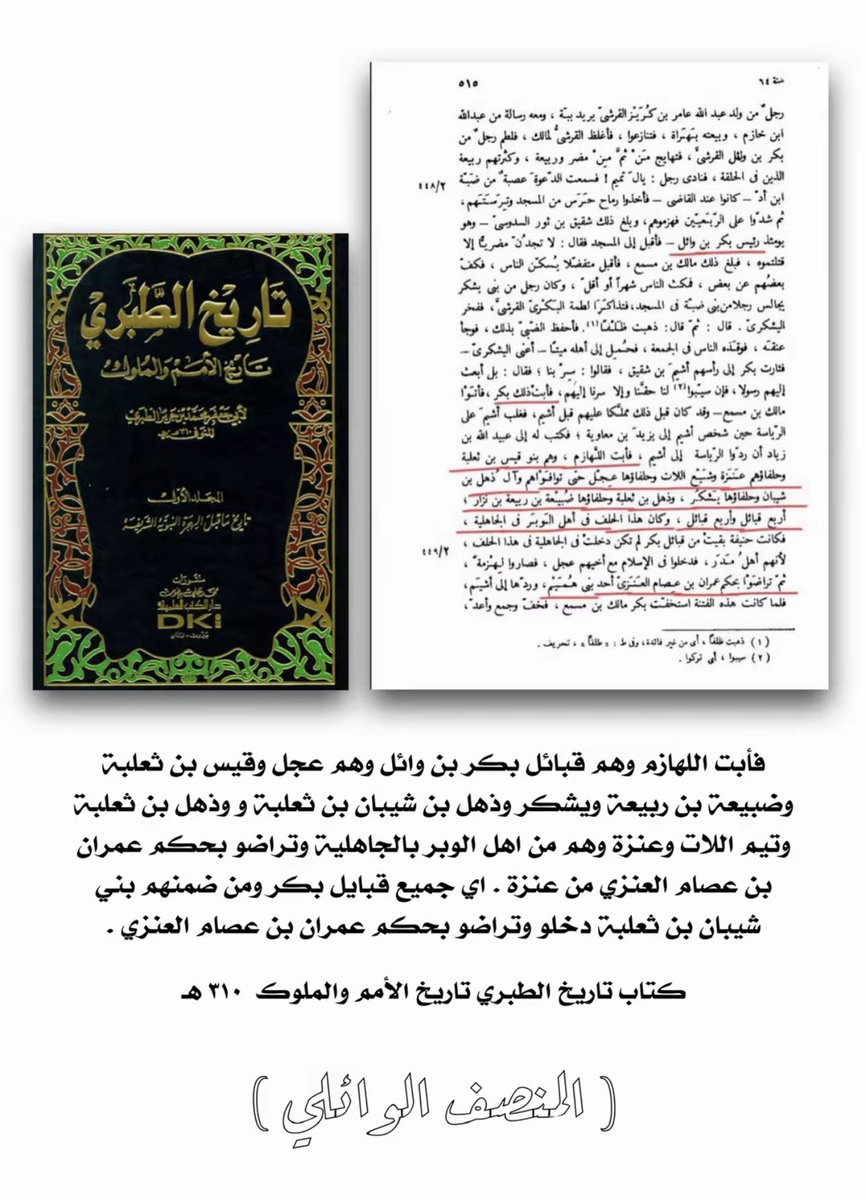 سنة ٦٤
٥١٥
رجلٌ من ولد عبد الله عامر بن كُرَيْز القرشىّ يريد ببّة ، ومعه رسالة من عبدالله
ابن خازم ، وبيعته بهَراة ، فتنازعوا ، فأغلظ القرشىُّ لمالك ، فلطم رجلٌ من
بكر بن وائل القرشىَّ ، فتهايج مَنْ ثَمَّ مِنْ مضر وربيعة ، وكثرتهم ربيعة
الذين فى الحلقة ، فنادى رجل : يالَ تميم ! فسمعت الدّعوةَ عصبةٌ من ضَبّة
٤٤٨/٢
ابن أدّ – كانوا عند القاضى – فأخذوا رماح حَرَس من المسجد وتِرَسَتَهم ،
ثم شدّوا على الرَّبَعيّين فهزموهم ، وبلغ ذلك شقيق بن ثور السدوسىّ – وهو
يومئذ رئيس بكر بن وائل – فأقبل إلى المسجد فقال : لا تجدُنّ مضريًّا إلا
قتلتموه ، فبلغ ذلك مالك بن مسمع ، فأقبل متفضلا يُسكّن الناس ، فكفّ
بعضُهم عن بعض ، فمكث الناس شهراً أو أقلّ ، وكان رجل من بنى يشكر
يجالس رجلا من بنى ضبّة فى المسجد، فتذاكرا لطمة البكرىّ القرشىَّ، ففخر
اليشكرىّ . قال : ثمّ قال: ذهبت ظَلَفاً(١). فأحفظ الضّبىّ بذلك ، فوجأ
عنقه ، فوقذه الناس فى الجمعة ، فحُمِل إلى أهله ميتا – أعنى اليشكرىّ –
فثارت بكر إلى رأسهم أشيم بن شقيق ، فقالوا : سِرْ بنا ؛ فقال : بل أبعث
إليهم رسولا، فإن سيّبوا(٢) لنا حقّنا وإلا سرنا إليهم ، فأبت ذلك بكر ، فأتَوْا
مالك بن مسمع – وقد كان قبل ذلك مملَّكا عليهم قبل أشيم ، فغلب أشيم على
الرّياسة حين شخص أشيم إلى يزيد بن معاوية ؛ فكتب له إلى عبيد الله بن
زياد أن ردّوا الرياسة إلى أشيم ، فأبت اللهازم ، وهم بنو قيس بن ثعلبة
وحلفاؤهم عنَزة وشَيْع اللات وحلفاؤها عجل حتى توافَوْا هم وآل ذُهل بن
شيبان وحلفاؤها يشكُر ، وذهل بن ثعلبة وحلفاؤها ضُبَيعة بن ربيعة بن نزار ؛
أربع قبائل وأربع قبائل ، وكان هذا الحلف فى أهل الوَبَر فى الجاهلية ،
فكانت حنيفة بقيتْ من قبائل بكر لم تكن دخلتْ فى الجاهلية فى هذا الحلف ،
٤٤٩/٢
لأنهم أهل مَدَر ، فدخلوا فى الإسلام مع أخيهم عجل ، فصاروا لِهزمة ،
ثمّ تراضَوْا بحكم عمران بن عصام العَنَزىّ أحد بنى هُمَيْم ، وردّها إلى أشيم ،
فلما كانت هذه الفتنة استخفّت بكر مالك بن مسمع ، فخفّ وجمع وأعدّ ،
(١) ذهبت ظلفا ، أى من غير فائدة، وفى ط : « طلقاً » ، تحريف .
(٢) سيبوا ، أى تركوا .
تاريخ الطبري
تاريخ الأمم والملوك
لأبي جعفر محمد بن جرير الطبري
المتوفى ٣١٠ هـ
المجلد الأول
تاريخ ما قبل الهجرة النبوية الشريفة
منشورات
محمد علي بيضون
دار الكتب العلمية
DKi
بيروت - لبنان
فأبت اللهازم وهم قبائل بكر بن وائل وهم عجل وقيس بن ثعلبة
وضبيعة بن ربيعة ويشكر وذهل بن شيبان بن ثعلبة و وذهل بن ثعلبة
وتيم اللات وعنزة وهم من اهل الوبر بالجاهلية وتراضو بحكم عمران
بن عصام العنزي من عنزة . اي جميع قبايل بكر ومن ضمنهم بني
شيبان بن ثعلبة دخلو وتراضو بحكم عمران بن عصام العنزي .
كتاب تاريخ الطبري تاريخ الأمم والملوك ٣١٠ هـ
( المنصف الوائلي )